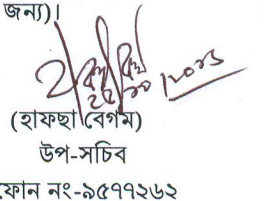 জন্য)।
(হাফছা বেগম)
উপ-সচিব
ফোন নং-৯৫৭৭২৬২